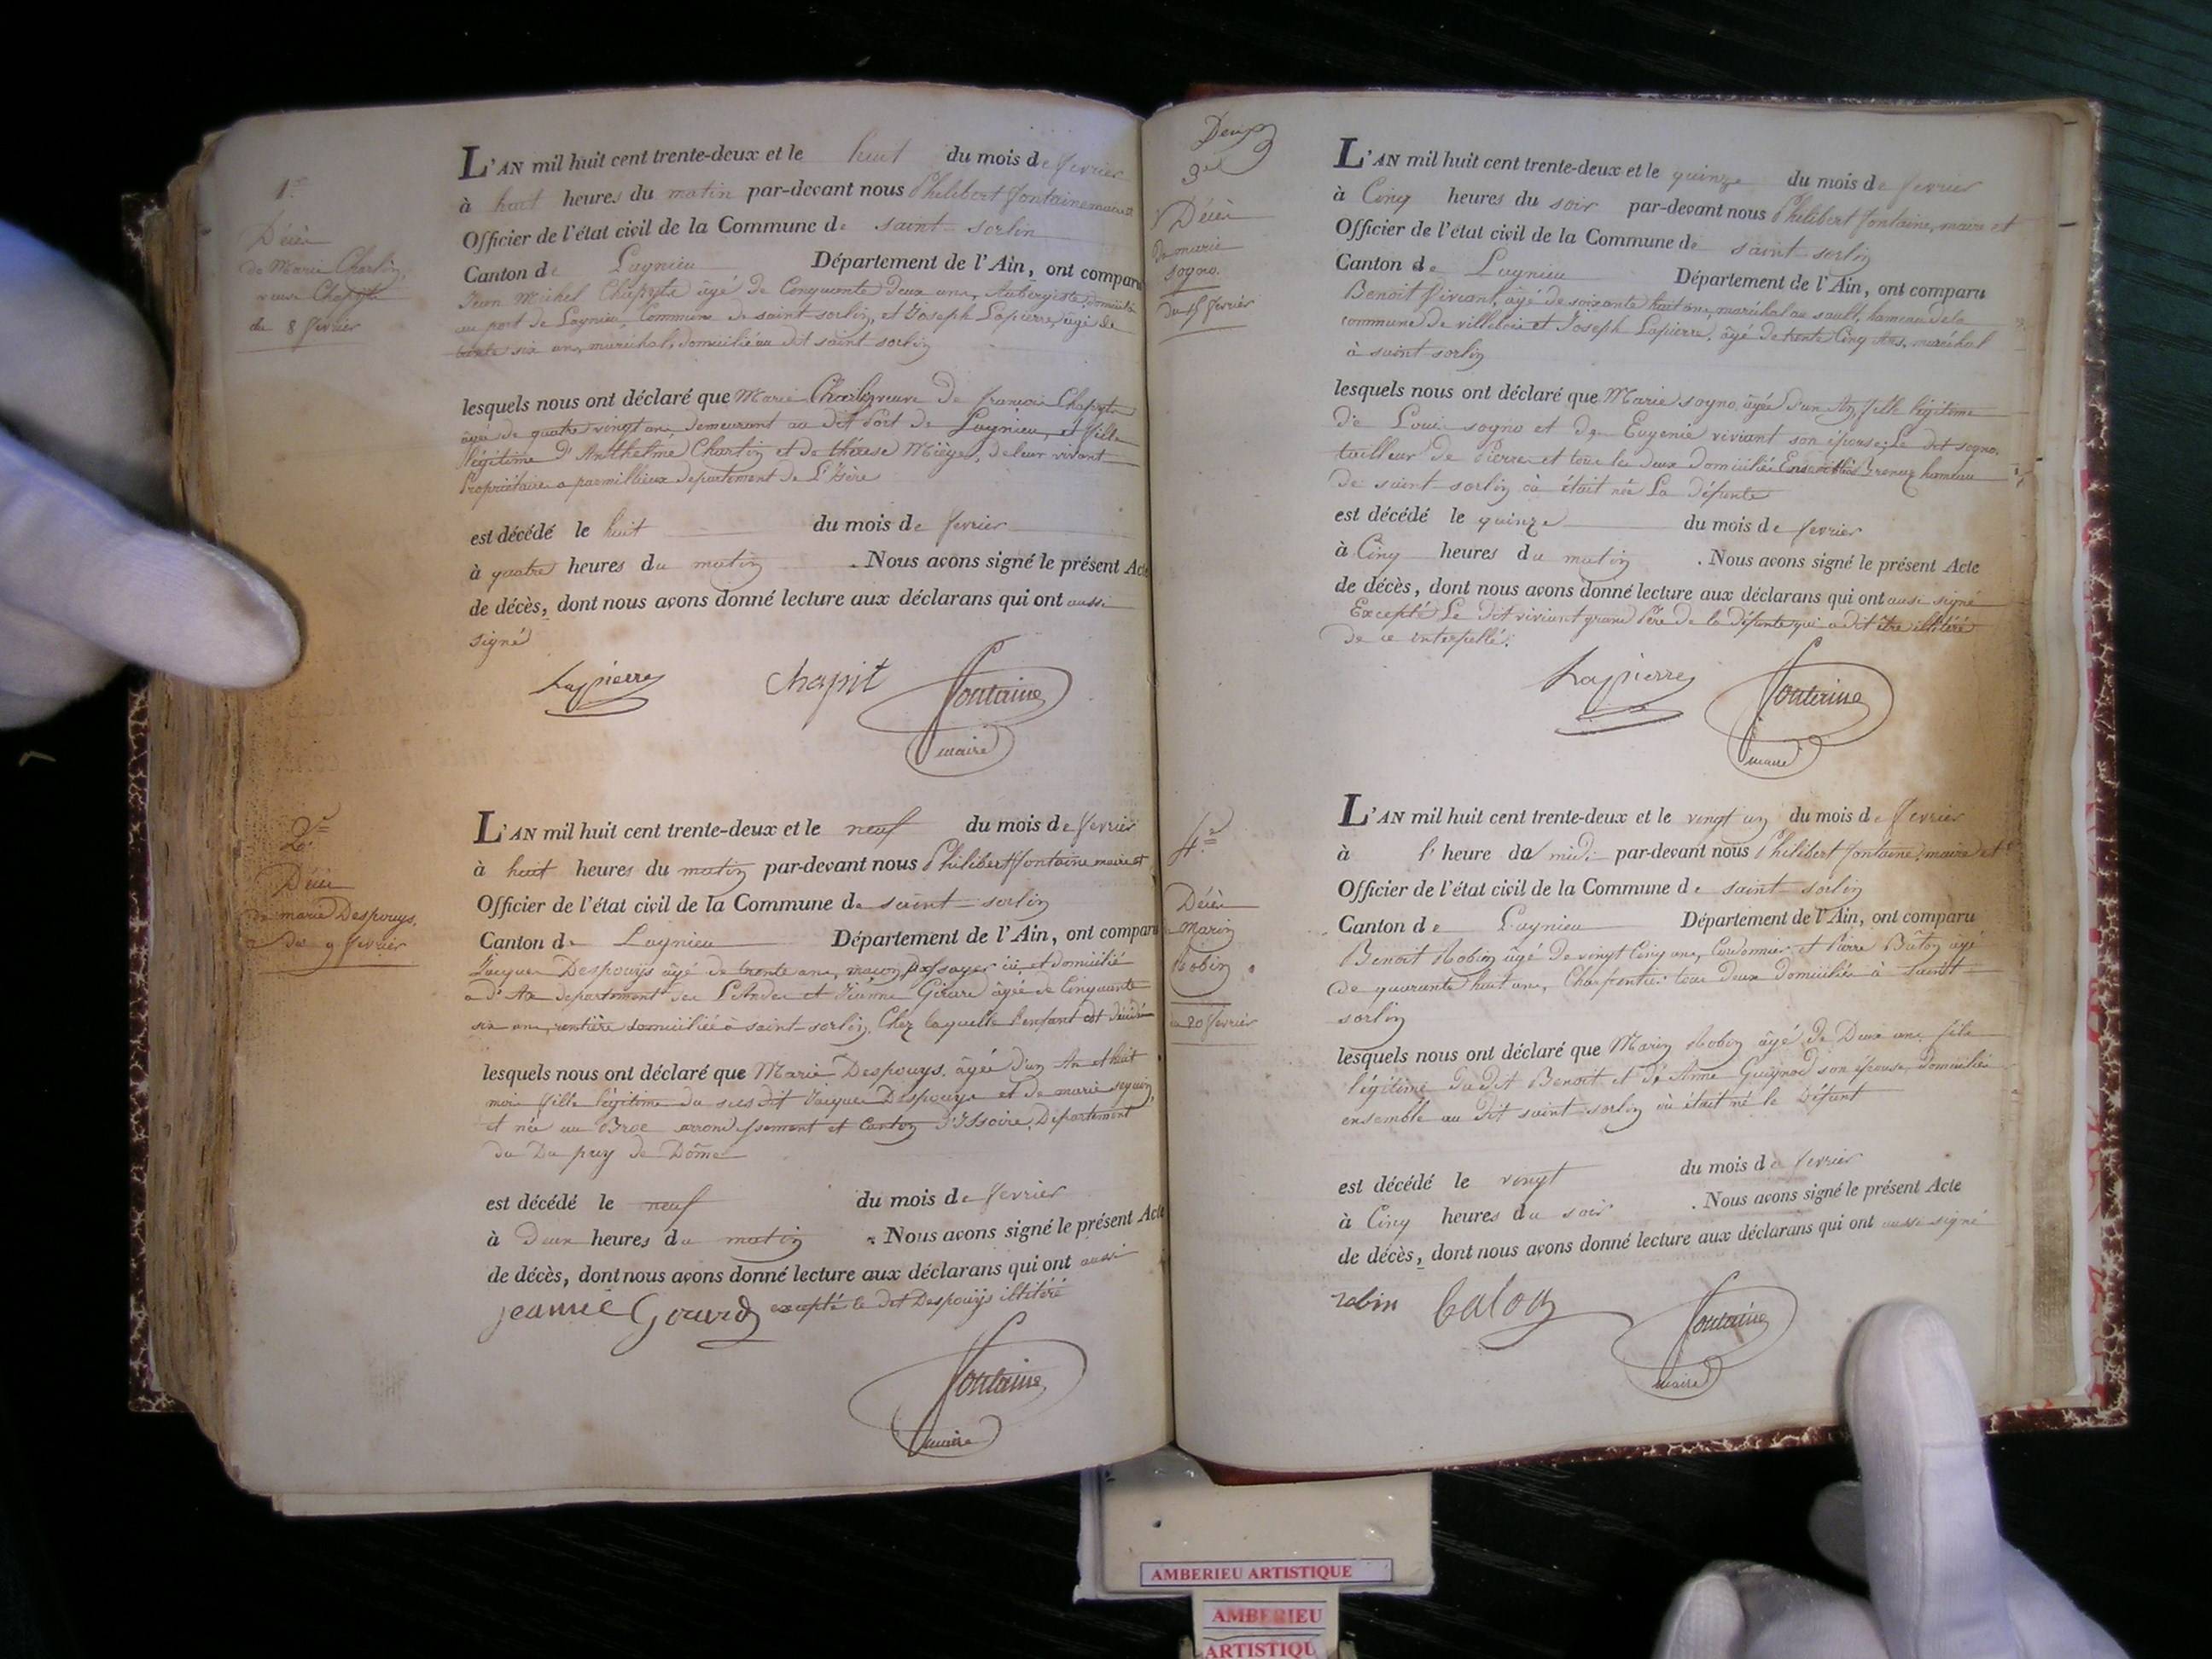 1er
Décès
de Marie Charlin,
veuve Chapyte
du 8 fevrier
L'AN mil huit cent trente-deux et le huit du mois de fevrier
à huit heures du matin par-devant nous Philibert fontaine maire et
Officier de l'état civil de la Commune de saint-sorlin
Canton de Lagnieu Département de l'Ain, ont comparu
Jean Michel Chapyte âgé de Cinquante deux ans, Aubergiste, domicilié
au port de Lagnieu, Commune de saint-sorlin, et Joseph Lapierre, âgé de
trente six ans, maréchal, domicilié au dit saint-sorlin
lesquels nous ont déclaré que Marie Charlin veuve de francois Chapyte
âgée de quatre vingt ans, demeurant au dit Port de Lagnieu, et fille
légitime d'Anthelme Charlin et de thérese Miège, de leur vivant
Propriétaires a parmillieux departement de L'Isère
est décédé le huit du mois de fevrier
à quatre heures du matin. Nous avons signé le présent Acte
de décès, dont nous avons donné lecture aux déclarans qui ont aussi
signé
Lapierre chapit fontaine
maire
2e
Décès
de marie Despouys,
du 9 fevrier
L'AN mil huit cent trente-deux et le neuf du mois de fevrier
à huit heures du matin par-devant nous Philibert fontaine maire et
Officier de l'état civil de la Commune de saint-sorlin
Canton de Lagnieu Département de l'Ain, ont comparu
Jacques Despouys âgé de trente ans, maçon passager ici et domicilié
a d'Ax departement de L'Andes et Jeanne Girard âgée de Cinquante
six ans, rentière domiciliée à saint-sorlin, Chez laquelle l'enfant est décédé
lesquels nous ont déclaré que Marie Despouys, âgée d'un An et huit
mois fille légitime du susdit Jacques Despouys et de marie seguin,
et née au Broc arrondissement et Canton d'Issoire, Département
du Du puy de Dôme
est décédé le neuf du mois de fevrier
à Deux heures du matin. Nous avons signé le présent Acte
de décès, dont nous avons donné lecture aux déclarans qui ont aussi
jeanne Gourd excepté le dit Despouys illitéré
fontaine
maire
Deux
3e
Décès
de marie
sogno.
du 15 fevrier
L'AN mil huit cent trente-deux et le quinze du mois de fevrier
à Cinq heures du soir par-devant nous Philibert fontaine, maire et
Officier de l'état civil de la Commune de saint-sorlin
Canton de Lagnieu Département de l'Ain, ont comparu
Benoit Viviant, âgé de soixante huit ans, maréchal au sault, hameau de la
commune de villebois et Joseph Lapierre, âgé de trente Cinq Ans, maréchal
à saint-sorlin
lesquels nous ont déclaré que Marie sogno, âgée d'un An, fille légitime
de Louis sogno et de Eugenie viviant son épouse; Le dit sogno,
tailleur de Pierre et tous les deux domiciliés Ensemble Brenaz hameau
de saint-sorlin où était née La défunte
est décédé le quinze du mois de fevrier
à Cinq heures du matin. Nous avons signé le présent Acte
de décès, dont nous avons donné lecture aux déclarans qui ont aussi signé
Excepté Le dit viviant grand Père de la défunte qui a dit être illitéré
de ce interpellé.
Lapierre fontaine
maire
4e
Décès
Marin
Robin
du 20 fevrier
L'AN mil huit cent trente-deux et le vingt un du mois de fevrier
à l' heure da midi par-devant nous Philibert fontaine, maire et
Officier de l'état civil de la Commune de saint-sorlin
Canton de Lagnieu Département de l'Ain, ont comparu
Benoit Robin âgé de vingt Cinq ans, Cordonnier et Pierre Bâton âgé
de quarante huit ans, Charpentier tous deux domiciliés à saint-
sorlin
lesquels nous ont déclaré que Marin Robin âgé de Deux ans, fils
légitime du dit Benoit et d'Anne Guignod son épouse, domiciliés
ensemble au dit saint-sorlin où était né le Défunt
est décédé le vingt du mois de fevrier
à Cinq heures du soir. Nous avons signé le présent Acte
de décès, dont nous avons donné lecture aux déclarans qui ont aussi signé
robin baton fontaine
maire
AMBERIEU ARTISTIQUE
AMBERIEU
ARTISTIQU